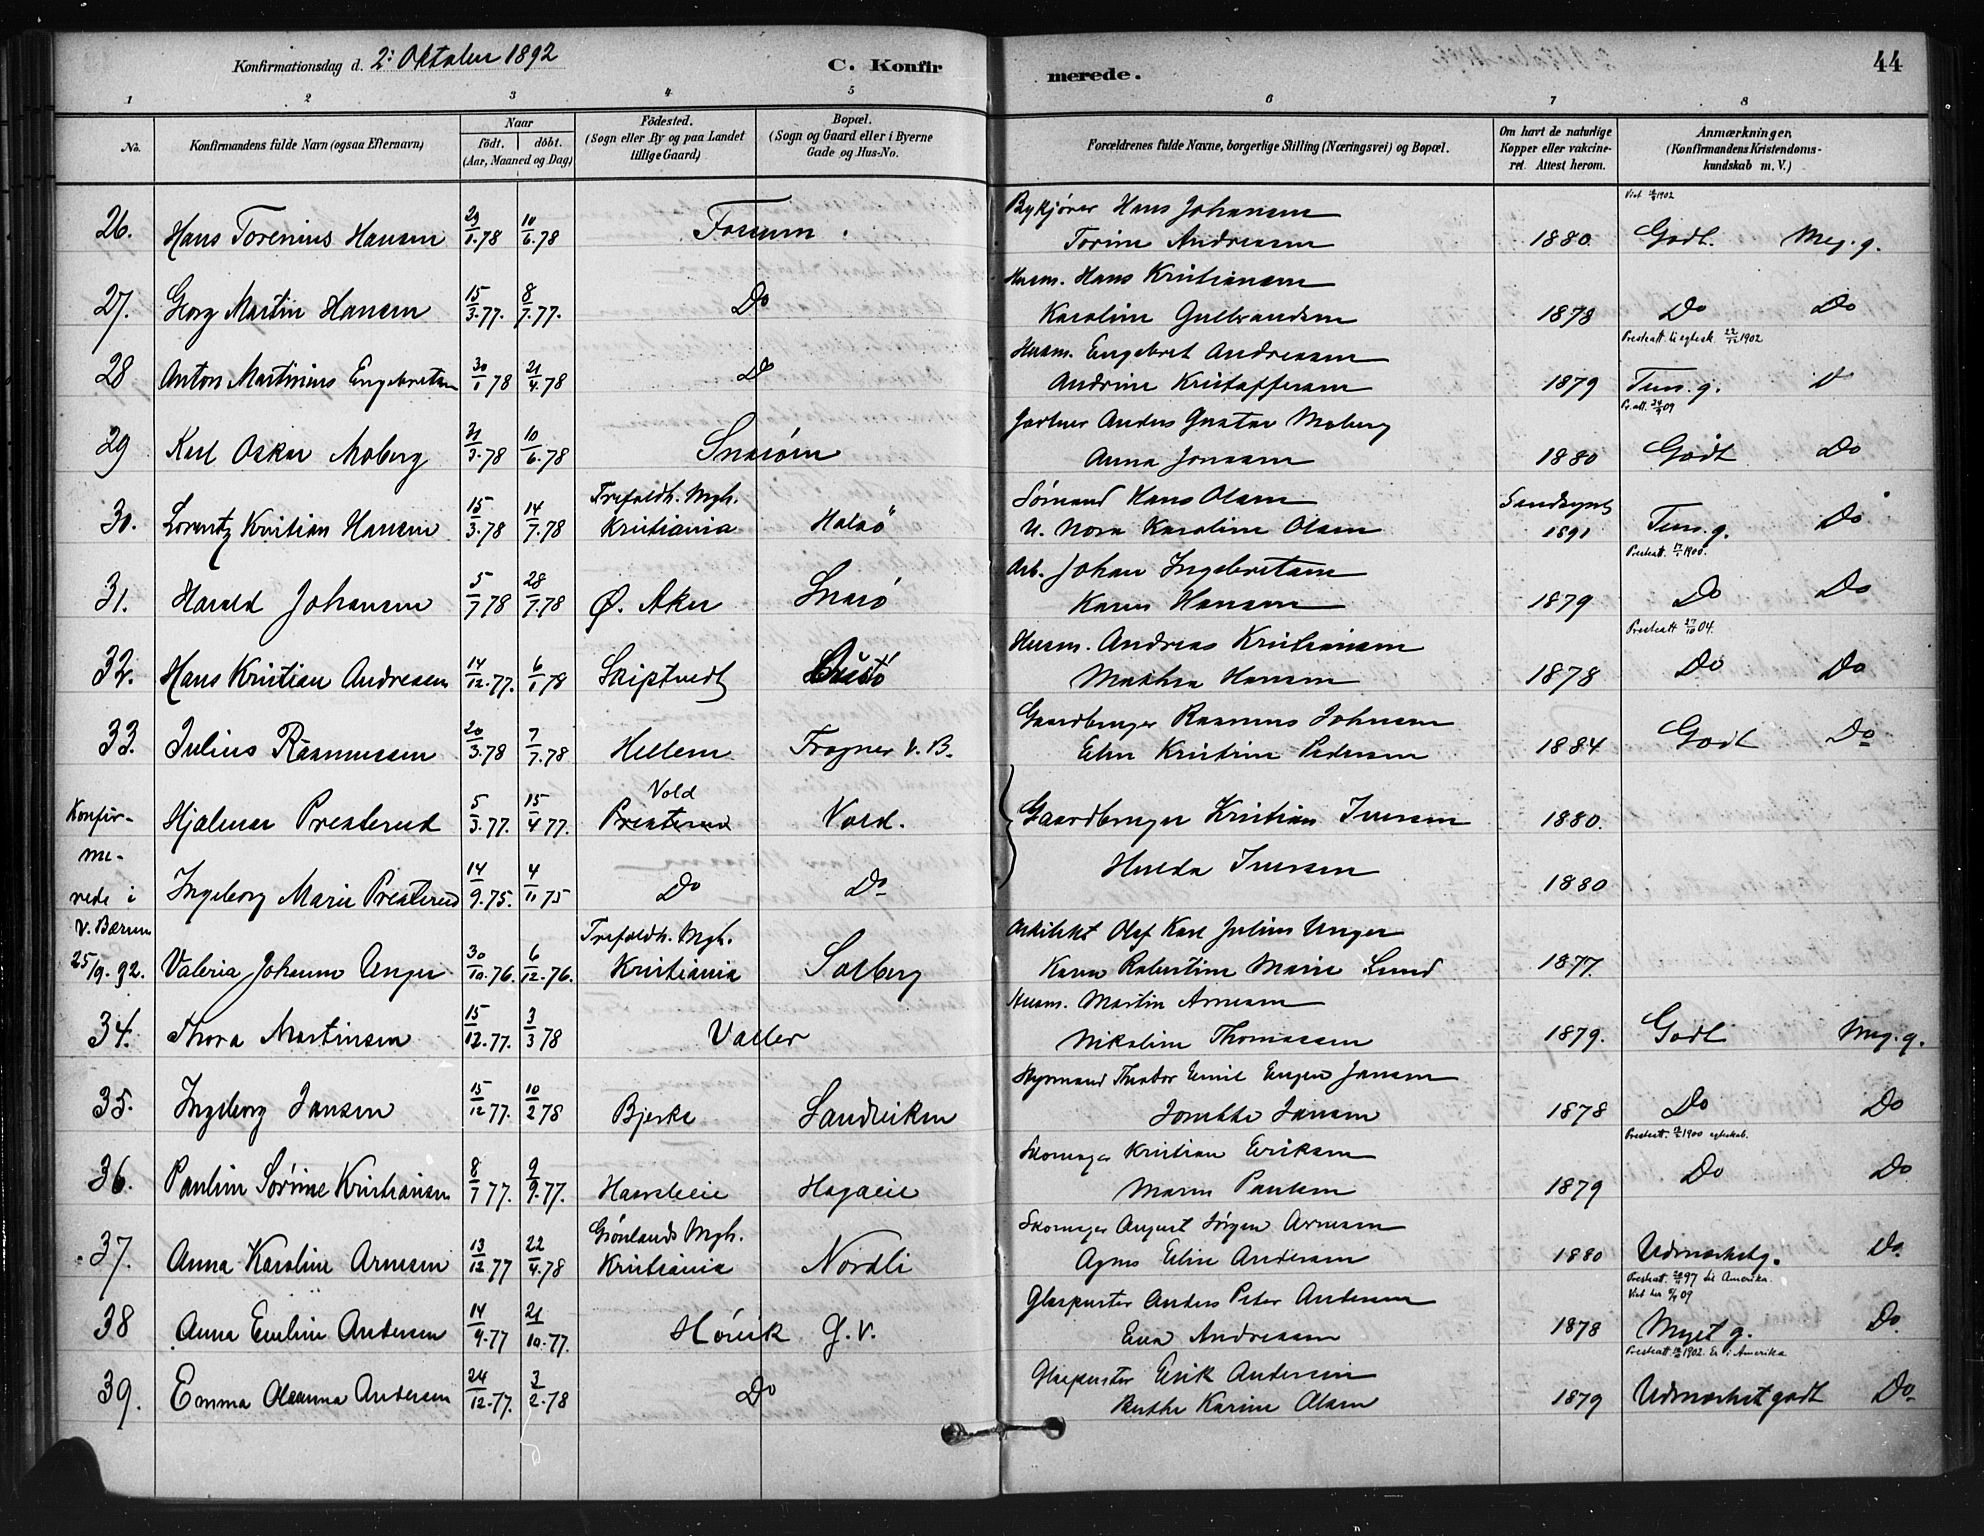 Konfirmationsdag d. 2: Oktober 1892 C. Konfirmerede. 44
1 2 3 4 5 6 7 8
No. Konfirmandens fulde Navn (ogsaa Efternavn) Naar født. døbt. (Aar, Maaned og Dag) Fødested. (Sogn eller By og paa Landet tillige Gaard) Bopæl. (Sogn og Gaard eller i Byerne Gade og Hus-No. Forældrenes fulde Navne, borgerlige Stilling (Næringsvei) og Bopæl. Om havt de naturlige Kopper eller vakcineret. Attest herom. Anmærkninger. (Konfirmandens Kristendomskundskab m. V.)
26. Hans Torenius Hansen 29/1.78 10/6.78 Fossum. Bykjører Hans Johansen
Torine Andreasen 1880. Godt. Meg. g.
27. Georg Martin Hansen 15/3.77. 8/7.77. Do Husm. Hans Kristiansen
Karoline Gulbrandsen 1878 Do Do
28 Anton Martinius Engebretsen 30/1 78 21/4.78 Do Husm. Engebret Andreasen Presteatt. til egtesk. 22/12 1902
Andrine Kristoffersen 1879 Tem. g. D
29 Karl Oskar Moberg 31/3.78 10/6.78 Snarøen Gartner Anders Gustav Moberg
Anna Jonsson 1880 Godt Do
30. Lorentz Kristian Hansen 15/3.78 14/7.78 Trefoldh. Mgh. Kristiania Halsø Sømand Hans Olsen
U. Nora Karoline Olsen 1891 Tem. g. Do
31. Harald Johansen 5/7 78 28/7.78 Ø. Aker Snarø Arb. Johan Ingebretsen
Karen Hansen 1879 Do Do
32. Hans Kristian Andreasen 14/12.77. 6/1 78 Skiptvedt Husm. Andreas Kristiansen Presteatt 27/10 04.
Mathea Hansen 1878 Do Do
33. Julius Rasmussen 20/3.78 7/7.78 Hellem Frogner V. B. Gaardbruger Rasmus Johnsen
Elen Kristine Pedersen 1884 Godt Do
Konfirmerede i V. Bærum 25/9.92.
Hjalmar Presterud 5/3.77. 15/4 77. Vold Presterud Vold. Gaardbruger Kristian Iversen 1880.
Hulda Iversen
Ingeborg Marie Presterud 14/9.75. 4/11 75 Do Do 1880
Valeria Johanne Unger 30/10.76. 6/12.76. Trefoldh. Mgh. Kristiania Solberg Arkitekt Olaf Karl Julius Unger
Karen Robertine Marie Lund 1877.
34. Thora Martinsen 15/12.77. 3/3 78 Valler Husm. Martin Arnesen
Nikoline Thomassen 1879. Godt Meg. g.
35. Ingeborg Jansen 15/12 77. 10/2 78 Bjerke Sandviken Styrmand Theodor Emil Eugen Jansen
Jansen 1878 Do Do
36. Pauline Sørine Kristiansen 8/7 77. 9/9.77. Hagaeie Skomager Kristian Eriksen Presteatt. 1900 egteskab.
Maren Paulsen 1879 Do Do
37. Anna Karoline Arnesen 13/12 77 22/4.78 Grønlands Mgh. Kristiania Nordli Skomager August Jørgen Arnesen
Agnes Eline Andersen 1880 Udmærket g. Do
38 Anna Emeline Andersen 14/9.77 21/10.77. Høvik G. V. Glaspuster Anders Peter Andersen Presteatt. 97 til Amerika.
Eva Andreasen 1878 Myet g. Do
39. Emma Oleanna Andersen 24/12.77. 3/2.78 Do Glaspuster Erik Andersen Presteatt. 1902. Er i Amerika
Berthe Karine Olsen 1879 Udmærket godt Do